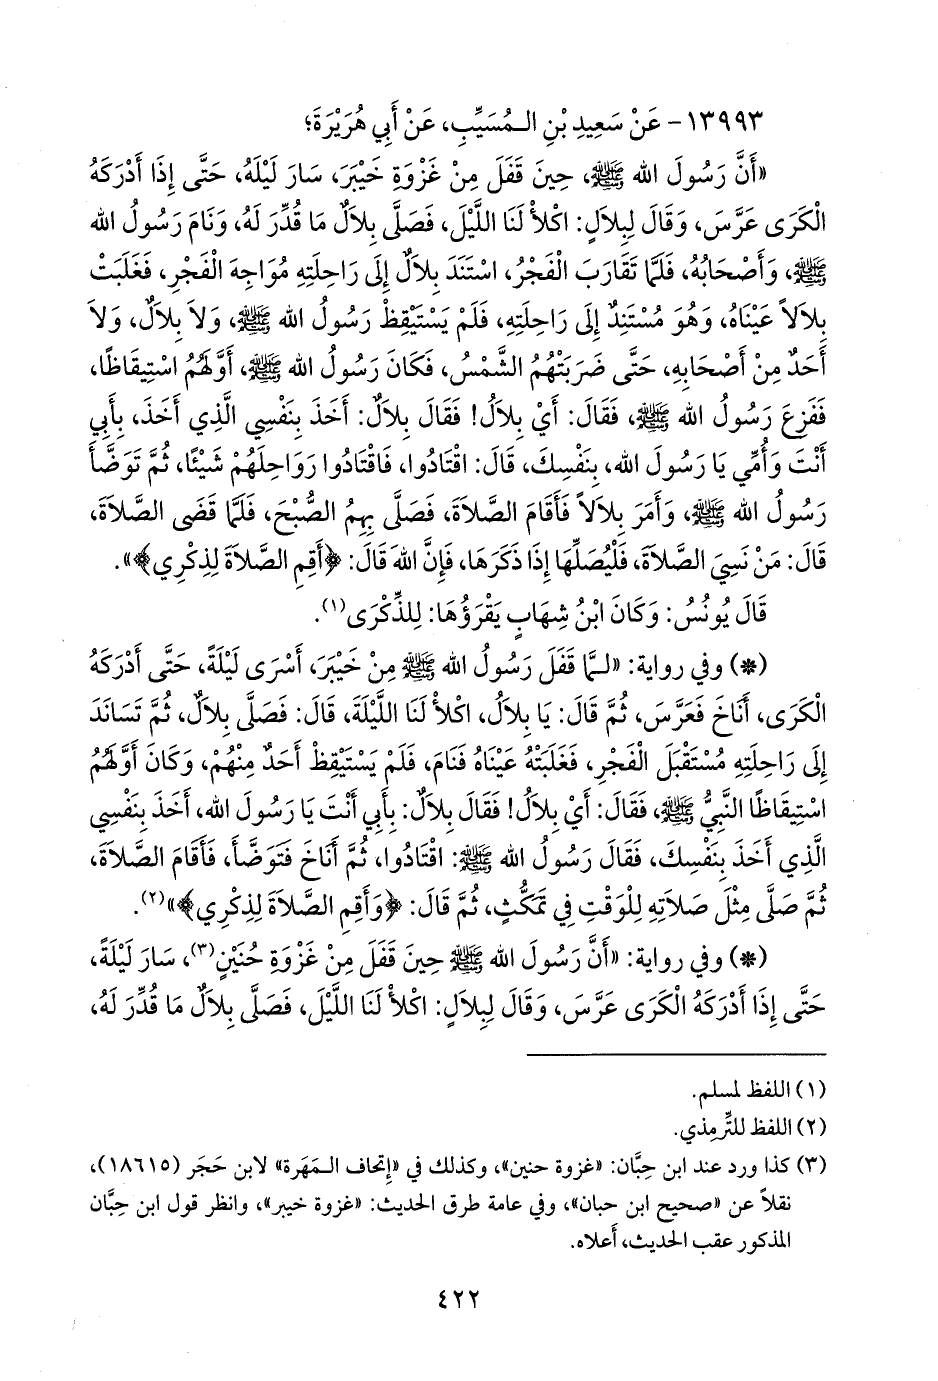 ١٣٩٩٣- عَنْ سَعِيدِ بْنِ الـمُسَيِّبِ، عَنْ أَبِي هُرَيْرَةَ؛
«أَنَّ رَسُولَ الله ﷺ، حِينَ قَفَلَ مِنْ غَزْوَةِ خَيْبَرَ، سَارَ لَيْلَهُ، حَتَّى إِذَا أَدْرَكَهُ
الْكَرَى عَرَّسَ، وَقَالَ لِبِلَالٍ: اكْلأْ لَنَا اللَّيْلَ، فَصَلَّى بِلَالٌ مَا قُدِّرَ لَهُ، وَنَامَ رَسُولُ الله
ﷺ، وَأَصْحَابُهُ، فَلَمَّا تَقَارَبَ الْفَجْرُ، اسْتَنَدَ بِلَالٌ إِلَى رَاحِلَتِهِ مُوَاجِهَ الْفَجْرِ، فَغَلَبَتْ
بِلَالاً عَيْنَاهُ، وَهُوَ مُسْتَنِدٌ إِلَى رَاحِلَتِهِ، فَلَمْ يَسْتَيْقِظْ رَسُولُ الله ﷺ، وَلاَ بِلَالٌ، وَلاَ
أَحَدٌ مِنْ أَصْحَابِهِ، حَتَّى ضَرَبَتْهُمُ الشَّمْسُ، فَكَانَ رَسُولُ الله ﷺ، أَوَّلَهُمُ اسْتِيقَاظًا،
فَفَزِعَ رَسُولُ الله ﷺ، فَقَالَ: أَيْ بِلَالُ! فَقَالَ بِلَالٌ: أَخَذَ بِنَفْسِي الَّذِي أَخَذَ، بِأَبِي
أَنْتَ وَأُمِّي يَا رَسُولَ الله، بِنَفْسِكَ، قَالَ: اقْتَادُوا، فَاقْتَادُوا رَوَاحِلَهُمْ شَيْئًا، ثُمَّ تَوَضَّأَ
رَسُولُ الله ﷺ، وَأَمَرَ بِلَالاً فَأَقَامَ الصَّلاَةَ، فَصَلَّى بِهِمُ الصُّبْحَ، فَلَمَّا قَضَى الصَّلاَةَ،
قَالَ: مَنْ نَسِيَ الصَّلاَةَ، فَلْيُصَلِّهَا إِذَا ذَكَرَهَا، فَإِنَّ اللهَ قَالَ: ﴿أَقِمِ الصَّلاَةَ لِذِكْرِي﴾».
قَالَ يُونُسُ: وَكَانَ ابْنُ شِهَابٍ يَقْرَؤُهَا: لِلذِّكْرَى(١).
(*) وفي رواية: «لـمَّا قَفَلَ رَسُولُ الله ﷺ مِنْ خَيْبَرَ، أَسْرَى لَيْلَةً، حَتَّى أَدْرَكَهُ
الْكَرَى، أَنَاخَ فَعَرَّسَ، ثُمَّ قَالَ: يَا بِلَالُ، اكْلأْ لَنَا اللَّيْلَةَ، قَالَ: فَصَلَّى بِلَالٌ، ثُمَّ تَسَانَدَ
إِلَى رَاحِلَتِهِ مُسْتَقْبَلَ الْفَجْرِ، فَغَلَبَتْهُ عَيْنَاهُ فَنَامَ، فَلَمْ يَسْتَيْقِظْ أَحَدٌ مِنْهُمْ، وَكَانَ أَوَّلَهُمُ
اسْتِيقَاظًا النَّبِيُّ ﷺ، فَقَالَ: أَيْ بِلَالُ! فَقَالَ بِلَالٌ: بِأَبِي أَنْتَ يَا رَسُولَ الله، أَخَذَ بِنَفْسِي
الَّذِي أَخَذَ بِنَفْسِكَ، فَقَالَ رَسُولُ الله ﷺ: اقْتَادُوا، ثُمَّ أَنَاخَ فَتَوَضَّأَ، فَأَقَامَ الصَّلاَةَ،
ثُمَّ صَلَّى مِثْلَ صَلاَتِهِ لِلْوَقْتِ فِي تَمَكُّثٍ، ثُمَّ قَالَ: ﴿وَأَقِمِ الصَّلاَةَ لِذِكْرِي﴾»(٢).
(*) وفي رواية: «أَنَّ رَسُولَ الله ﷺ حِينَ قَفَلَ مِنْ غَزْوَةِ حُنَيْنٍ(٣)، سَارَ لَيْلَةً،
حَتَّى إِذَا أَدْرَكَهُ الْكَرَى عَرَّسَ، وَقَالَ لِبِلَالٍ: اكْلأْ لَنَا اللَّيْلَ، فَصَلَّى بِلَالٌ مَا قُدِّرَ لَهُ،
(١) اللفظ لمسلم.
(٢) اللفظ للتِّرمِذي.
(٣) كذا ورد عند ابن حِبَّان: «غزوة حنين»، وكذلك في «إتحاف الـمَهَرة» لابن حَجَر (١٨٦١٥)،
نقلاً عن «صحيح ابن حبان»، وفي عامة طرق الحديث: «غزوة خيبر»، وانظر قول ابن حِبَّان
المذكور عقب الحديث، أعلاه.
٤٢٢